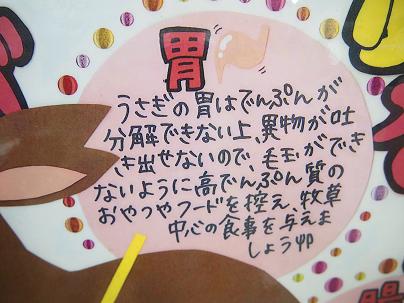 胃
うさぎの胃はでんぷんが
分解できない上、異物が吐
き出せないので、毛玉ができ
ないように高でんぷん質の
おやつやフードを控え、牧草
中心の食事を与えま
しょう